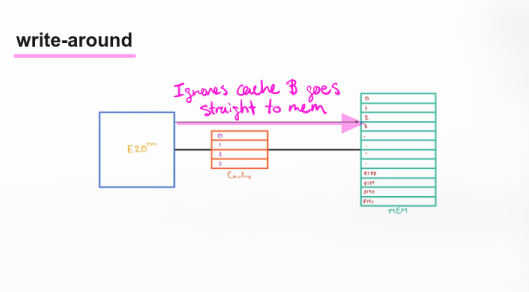 write-around
Ignores cache & goes
straight to mem
E20
0
1
2
3
Cache
0
1
2
3
.
.
.
.
8188
8189
8190
8191
MEM